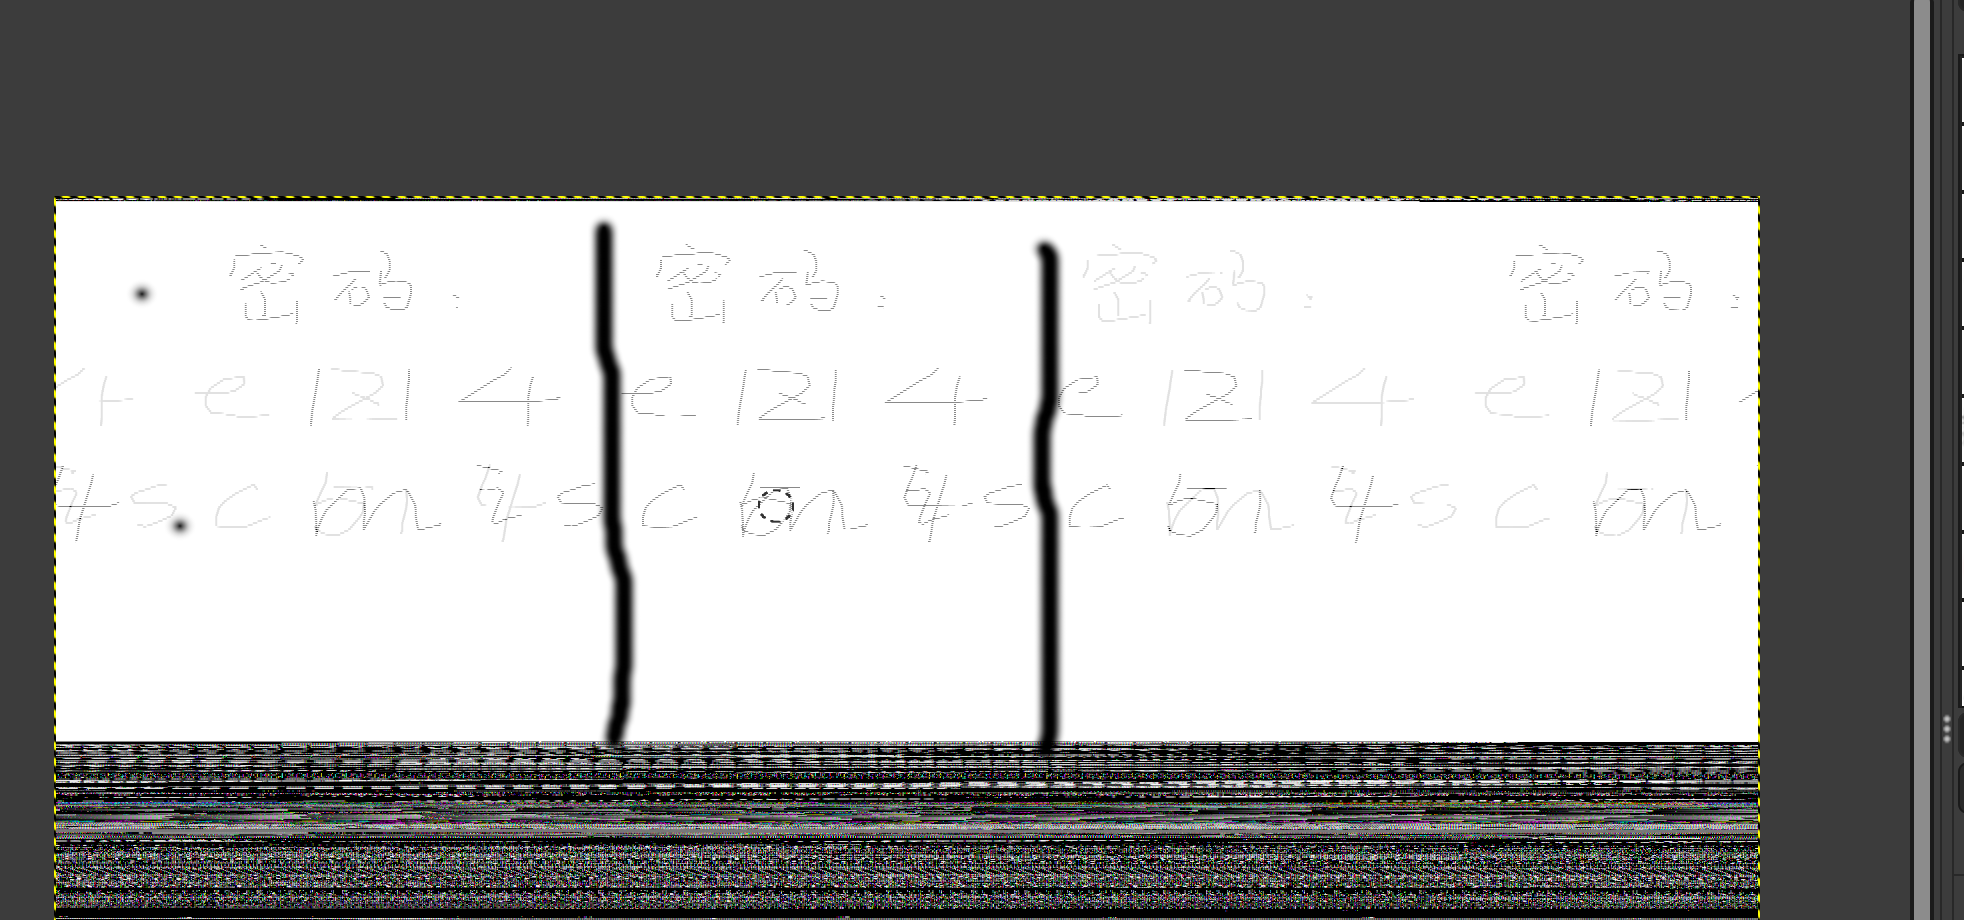 密码: 密码: 密码: 密码:
4 e 121 4 e 121 4 e 121 4 e 121
4 s c 4 s c 4 s c 4 s c